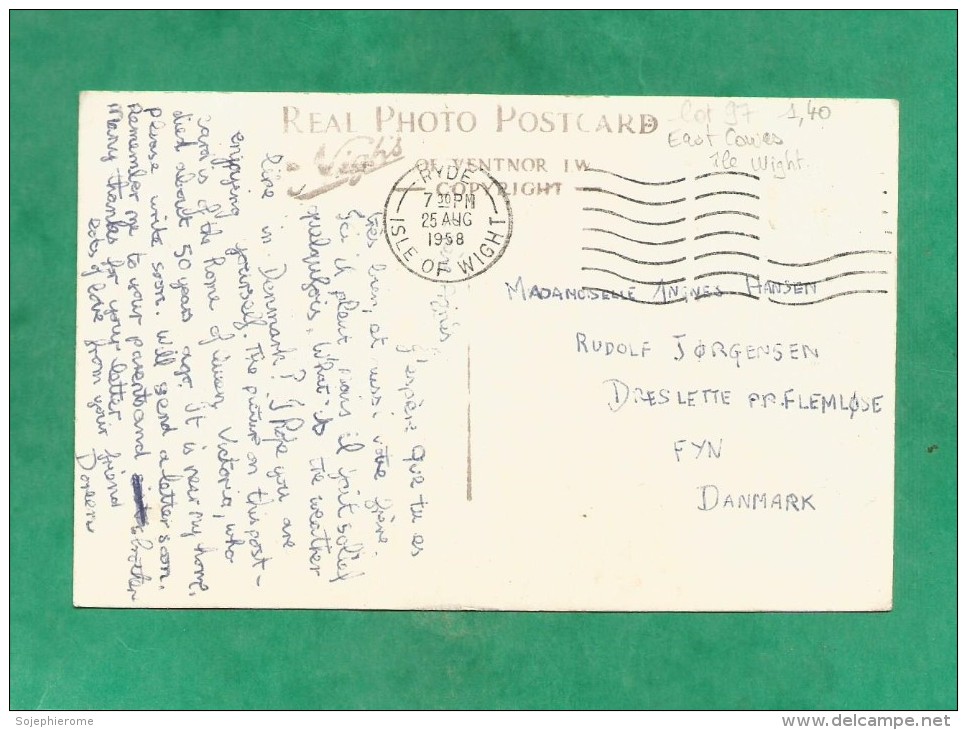 REAL PHOTO POSTCARD
Nigh's
OF VENTNOR I.W.
COPYRIGHT
Lot 97 1,40
East Cowes
Ile Wight
RYDE
7 30 PM
25 AUG
1958
ISLE OF WIGHT
J'espère que tu es
très bien, et aussi votre frère.
Ici il pleut mais il fait soleil
quelquefois. What is the weather
like in Denmark? I hope you are
enjoying yourself. The picture on this post-
card is of the home of Queen Victoria, who
died about 50 years ago. It is near my home.
Please write soon. Will send a letter soon.
Remember me to your parents and brother
Many thanks for your letter
Lots of love from your friend
Doreen
MADAMOISELLE ANINES HANSEN
RUDOLF JØRGENSEN
DRESLETTE PR. FLEMLØSE
FYN
DANMARK
Sojephierome
www.delcampe.net